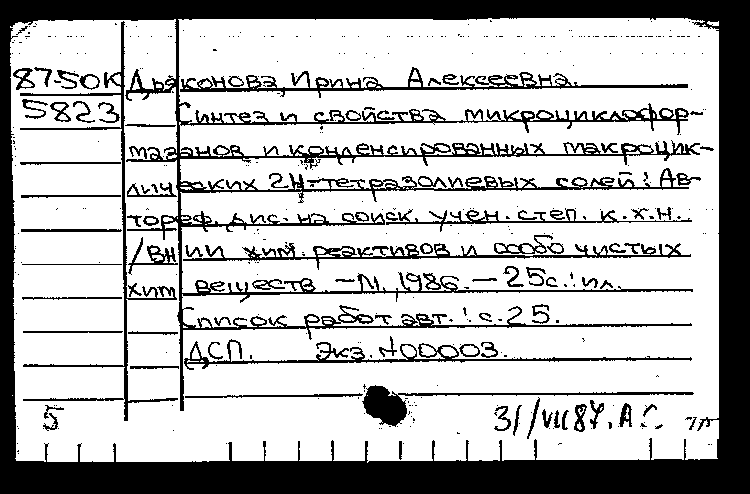 87-50К Дьяконова, Ирина Алексеевна.
5823 Синтез и свойства микроциклофор-
мазанов и конденсированных макроцик-
лических 2H-тетразолиевых солей: Ав-
тореф. дис. на соиск. учен. степ. к.х.н.
/ВНИИ хим. реактивов и особо чистых
хим веществ. - М., 1986. - 25с.: ил.
Список работ авт.: с. 25.
ДСП. Экз. N00003.
5 31/VII 87. А.С.